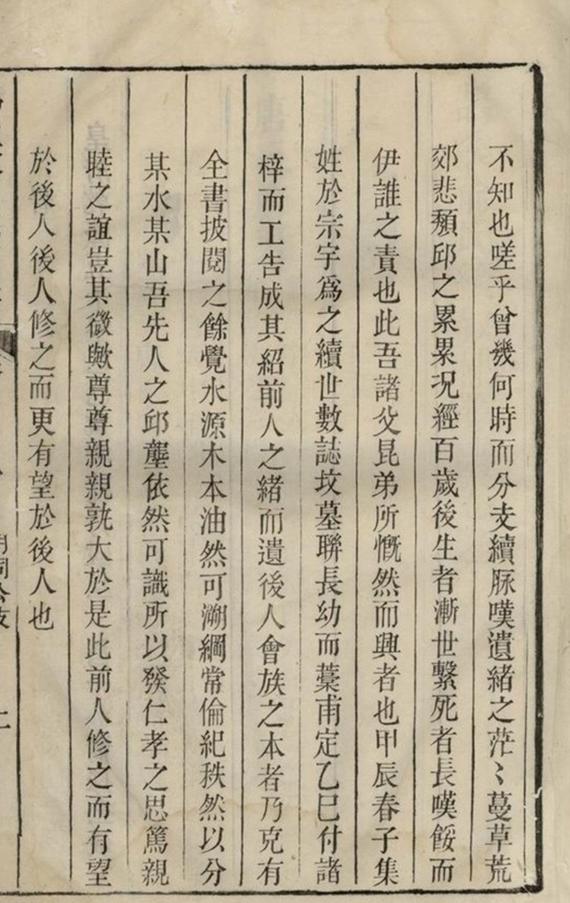 不知也嗟乎曾幾何時而分支續脈嘆遺緒之茫〻蔓草荒
郊悲頽邱之累累况經百歲後生者漸世繫死者長嘆餒而
伊誰之責也此吾諸父昆弟所慨然而興者也甲辰春子集
姓於宗字爲之續世數誌坟墓聯長幼而藁甫定乙巳付諸
梓而工告成其紹前人之緒而遺後人會族之本者乃克有
全書披閱之餘覺水源木本油然可溯綱常倫紀秩然以分
某水某山吾先人之邱壟依然可識所以發仁孝之思篤親
睦之誼豈其微歟尊尊親親孰大於是此前人修之而有望
於後人後人修之而更有望於後人也